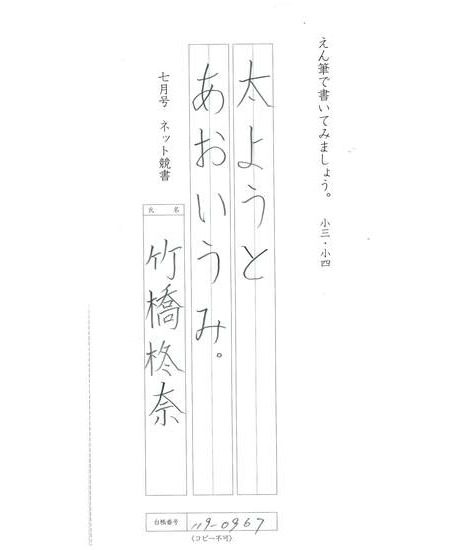 えん筆で書いてみましょう。 小三・小四
太ようと
あおいうみ。
七月号 ネット競書
氏名
竹橋柊奈
台帳番号 119-0967
(コピー不可)